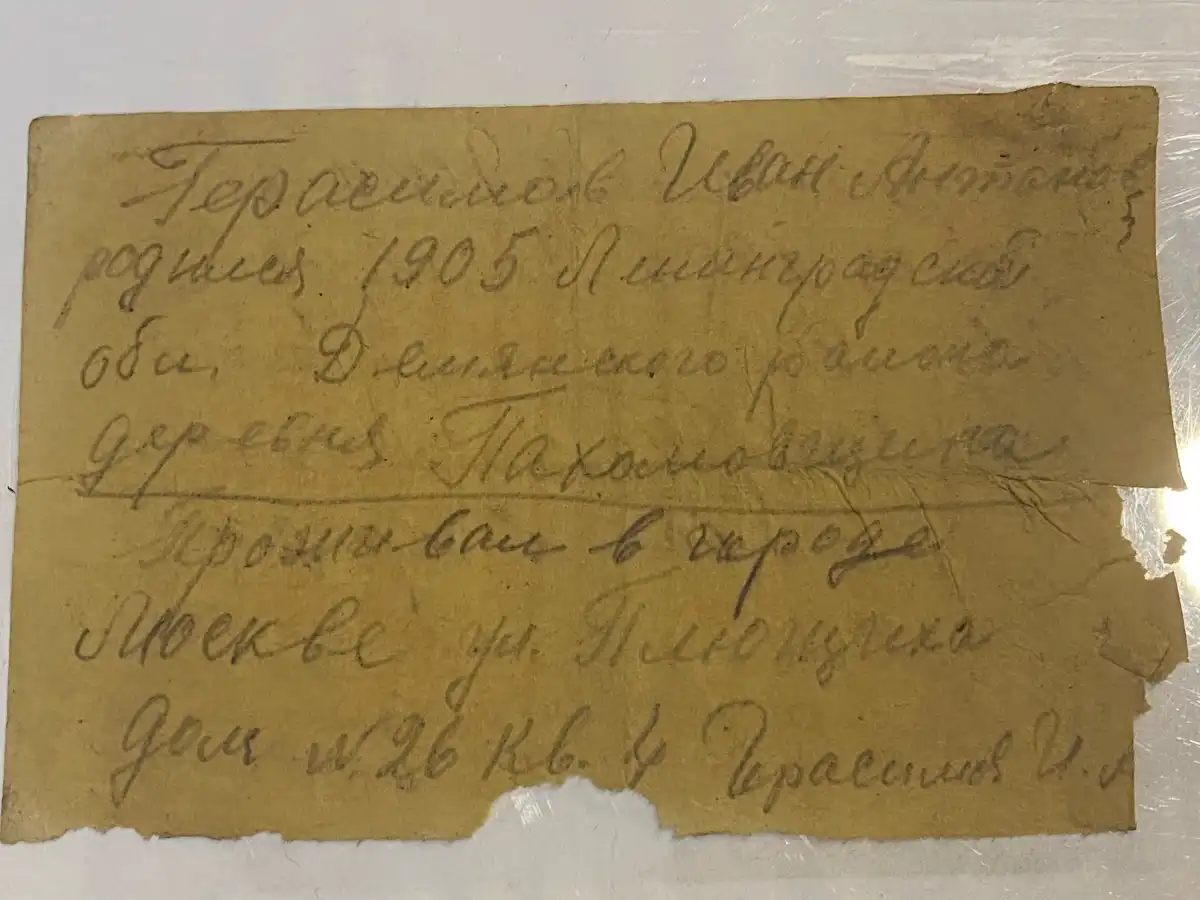 Герасимов Иван Антонов
родился 1905 Лининградской
обл. Демянского района
деревня Пахомовщина
Проживал в городе
Москве ул. Плющиха
дом № 26 кв. 4 Герасимов И. А